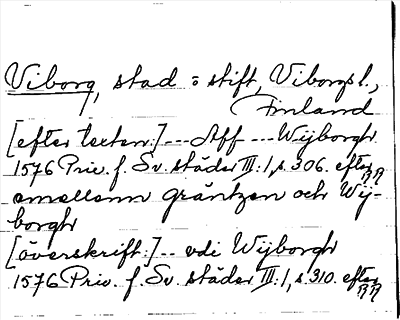 Viborg, stad o stift, Viborgs l.,
Finland
[efter texten:] --- Aff --- Wijborgh
1576 Priv. f. Sv. städer III:1, s. 306. efter RA
emellann gräntzen och Wij-
borgh
[överskrift:] -- vdi Wijborgh
1576 Priv. f. Sv. städer III:1, s. 310. efter RA